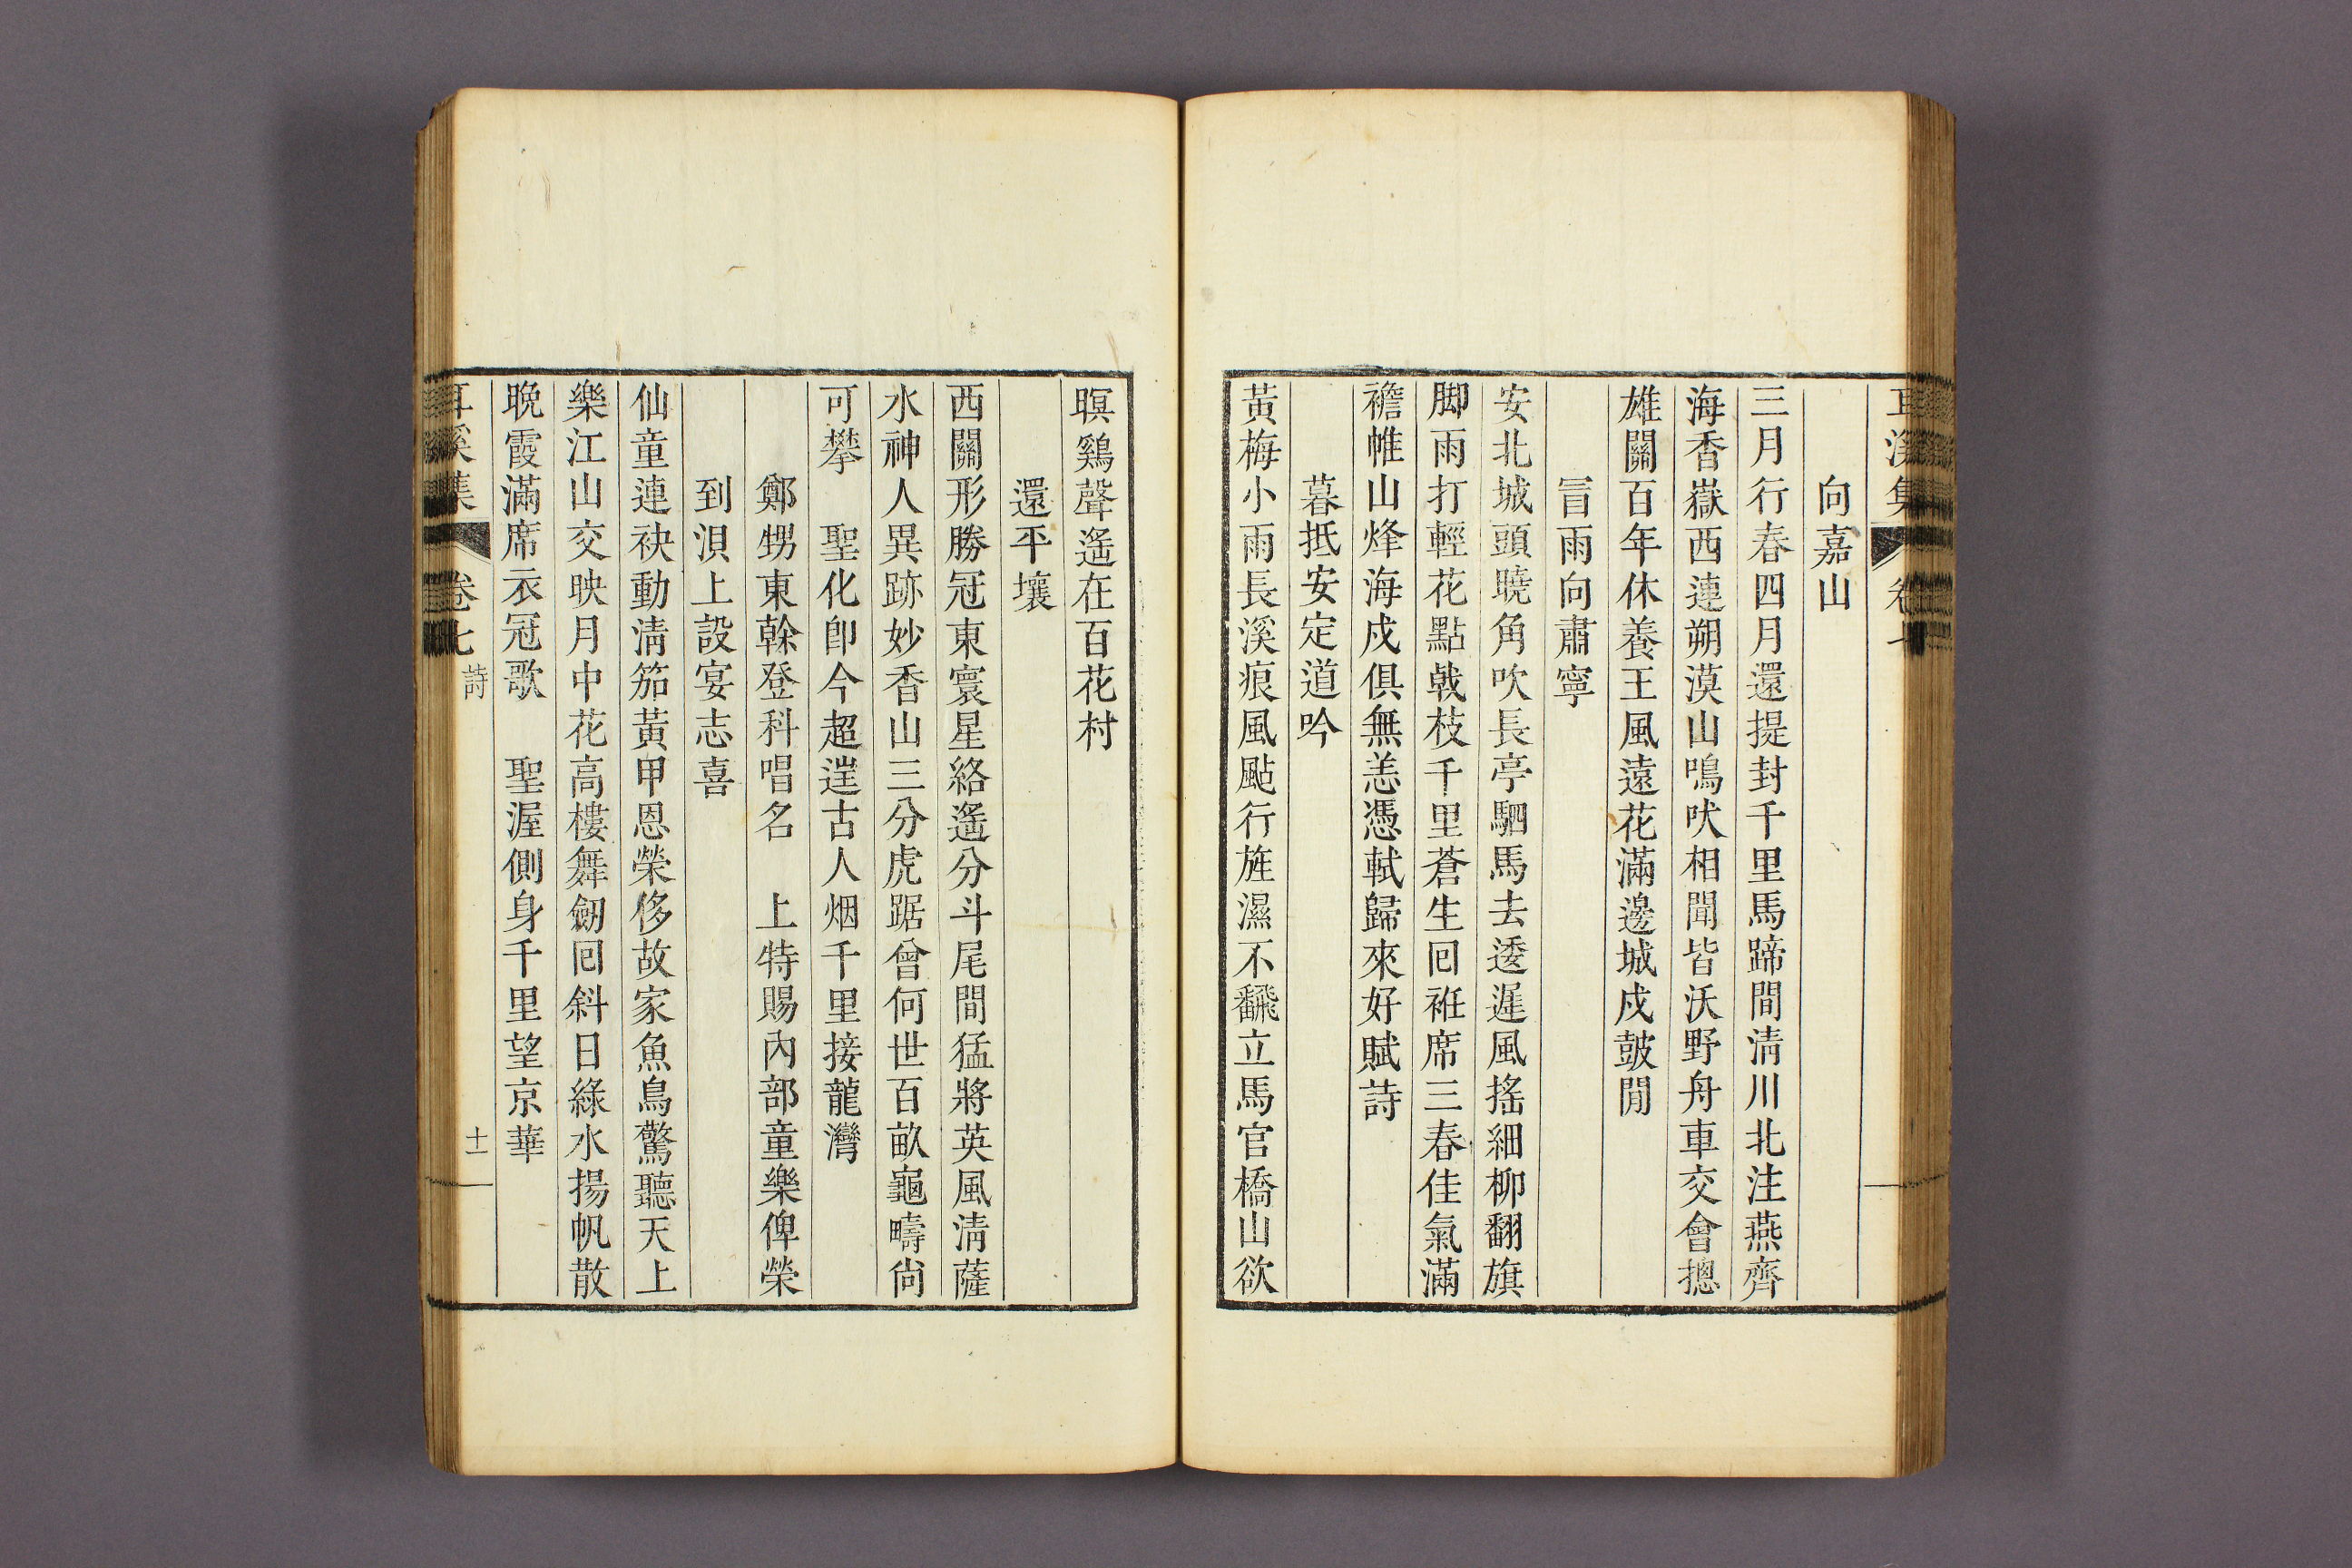 耳溪集 卷七
向嘉山
三月行春四月還提封千里馬蹄間淸川北注燕齊
海香嶽西連朔漠山鳴吠相聞皆沃野舟車交會摠
雄關百年休養王風遠花滿邊城戍鼓閒
冒雨向肅寧
安北城頭曉角吹長亭駟馬去逶遲風搖細柳翻旗
脚雨打輕花點戟枝千里蒼生回袵席三春佳氣滿
襜帷山烽海戍俱無恙憑軾歸來好賦詩
暮抵安定道吟
黃梅小雨長溪痕風颭行旌濕不飜立馬官橋山欲
暝鷄聲遙在百花村
還平壤
西關形勝冠東寰星絡遙分斗尾間猛將英風淸薩
水神人異跡妙香山三分虎踞曾何世百畝龜疇尙
可攀 聖化卽今超邃古人烟千里接龍灣
鄭甥東榦登科唱名 上特賜內部童樂俾榮
到浿上設宴志喜
仙童連袂動淸笳黃甲恩榮侈故家魚鳥驚聽天上
樂江山交映月中花高樓舞劒回斜日綠水揚帆散
晩霞滿席衣冠歌 聖渥側身千里望京華
耳溪集 卷七 詩 十一